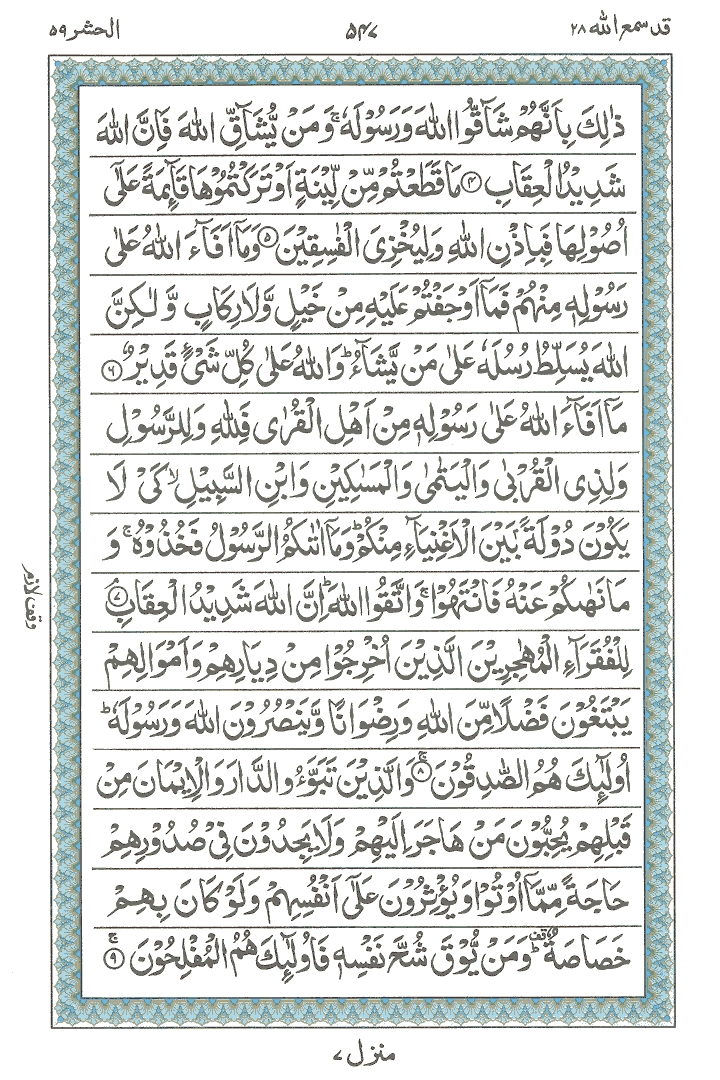 قد سمع الله ٢٨
۵۴۷
الحشر ۵۹
ذٰلِكَ بِاَنَّهُمْ شَآقُّوا اللّٰهَ وَرَسُوْلَهٗ ۚ وَمَنْ يُّشَآقِّ اللّٰهَ فَاِنَّ اللّٰهَ
شَدِيْدُ الْعِقَابِ ۴ مَا قَطَعْتُمْ مِّنْ لِّيْنَةٍ اَوْ تَرَكْتُمُوْهَا قَآئِمَةً عَلٰٓى
اُصُوْلِهَا فَبِاِذْنِ اللّٰهِ وَلِيُخْزِىَ الْفٰسِقِيْنَ ۵ وَمَآ اَفَآءَ اللّٰهُ عَلٰى
رَسُوْلِهٖ مِنْهُمْ فَمَآ اَوْجَفْتُمْ عَلَيْهِ مِنْ خَيْلٍ وَّلَا رِكَابٍ وَّلٰكِنَّ
اللّٰهَ يُسَلِّطُ رُسُلَهٗ عَلٰى مَنْ يَّشَآءُ ؕ وَاللّٰهُ عَلٰى كُلِّ شَىْءٍ قَدِيْرٌ ۶
مَآ اَفَآءَ اللّٰهُ عَلٰى رَسُوْلِهٖ مِنْ اَهْلِ الْقُرٰى فَلِلّٰهِ وَلِلرَّسُوْلِ
وَلِذِى الْقُرْبٰى وَالْيَتٰمٰى وَالْمَسٰكِيْنِ وَابْنِ السَّبِيْلِ ۙ كَىْ لَا
يَكُوْنَ دُوْلَةً ۢ بَيْنَ الْاَغْنِيَآءِ مِنْكُمْ ؕ وَمَآ اٰتٰىكُمُ الرَّسُوْلُ فَخُذُوْهُ ۚ وَ
مَا نَهٰىكُمْ عَنْهُ فَانْتَهُوْا ۚ وَاتَّقُوا اللّٰهَ ؕ اِنَّ اللّٰهَ شَدِيْدُ الْعِقَابِ ۘ ۷
وقف لازم
لِلْفُقَرَآءِ الْمُهٰجِرِيْنَ الَّذِيْنَ اُخْرِجُوْا مِنْ دِيَارِهِمْ وَاَمْوَالِهِمْ
يَبْتَغُوْنَ فَضْلًا مِّنَ اللّٰهِ وَرِضْوَانًا وَّيَنْصُرُوْنَ اللّٰهَ وَرَسُوْلَهٗ ؕ
اُولٰٓئِكَ هُمُ الصّٰدِقُوْنَ ۚ ۸ وَالَّذِيْنَ تَبَوَّءُو الدَّارَ وَالْاِيْمَانَ مِنْ
قَبْلِهِمْ يُحِبُّوْنَ مَنْ هَاجَرَ اِلَيْهِمْ وَلَا يَجِدُوْنَ فِىْ صُدُوْرِهِمْ
حَاجَةً مِّمَّآ اُوْتُوْا وَيُؤْثِرُوْنَ عَلٰٓى اَنْفُسِهِمْ وَلَوْ كَانَ بِهِمْ
خَصَاصَةٌ ؕ قف وَمَنْ يُّوْقَ شُحَّ نَفْسِهٖ فَاُولٰٓئِكَ هُمُ الْمُفْلِحُوْنَ ۚ ۹
منزل ۷